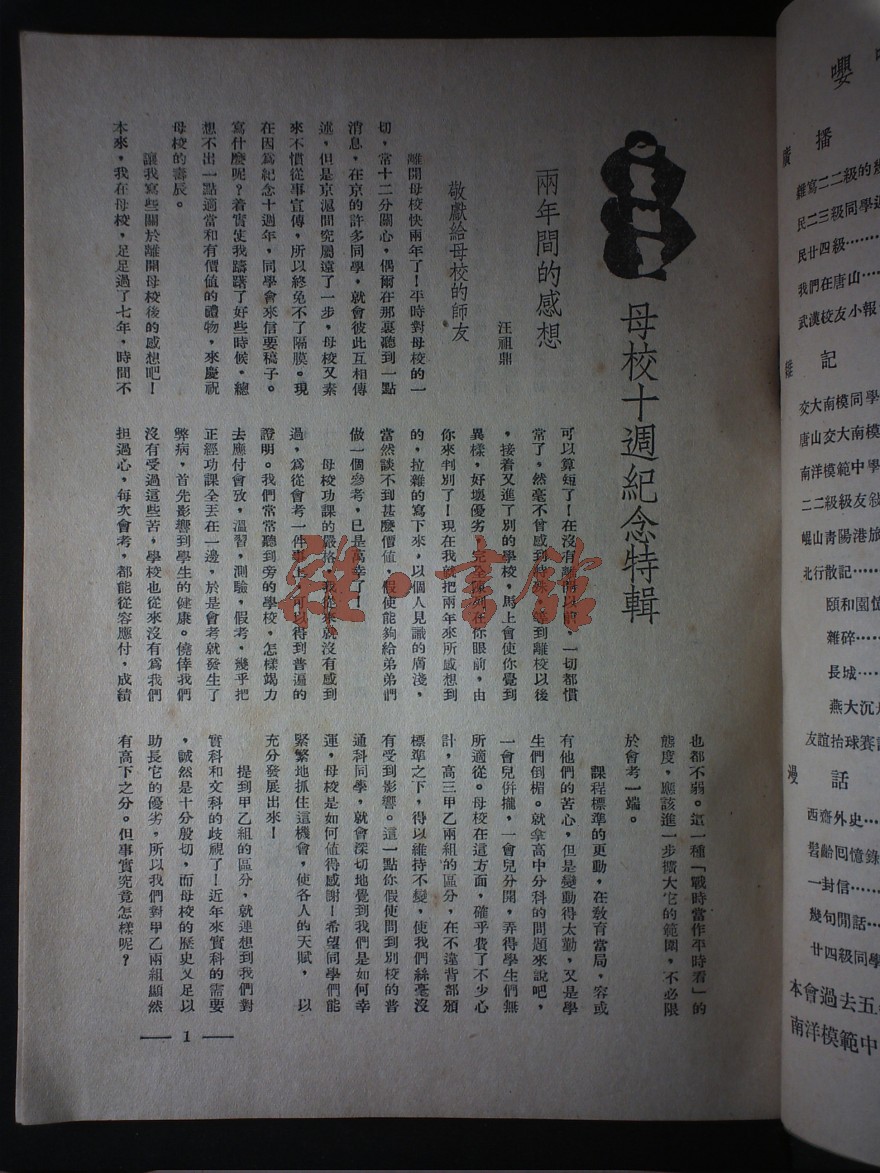 母校十週紀念特輯
兩年間的感想
汪祖鼎
敬獻給母校的師友
離開母校快兩年了！平時對母校的一
切，常十二分關心，偶爾在那裏聽到一點
消息，在京的許多同學，就會彼此互相傳
述，但是京滬間究屬遠了一步，母校又素
來不慣從事宣傳，所以終免不了隔膜。現
在因爲紀念十週年，同學會來信要稿子。
寫什麼呢？着實使我躊躇了好些時候，總
想不出一點適當和有價值的禮物，來慶祝
母校的壽辰。
讓我寫些關於離開母校後的感想吧！
本來，我在母校，足足過了七年，時間不
可以算短了！在沒有離開以前，一切都慣
常了，然毫不曾感到特殊，等到離校以後
，接着又進了別的學校，馬上會使你覺到
異樣，好壞優劣，完全陳列在你眼前，由
你來判別了！現在我就把兩年來所感想到
的，拉雜的寫下來，以個人見識的膚淺，
當然談不到甚麼價值，假使能夠給弟弟們
做一個參考，已是萬幸了！
母校功課的嚴格，我從來就沒有感到
過，爲從會考一件事上，可以得到普遍的
證明。我們常常聽到旁的學校，怎樣竭力
去應付會攷，溫習，測驗，假考，幾乎把
正經功課全丟在一邊，於是會考就發生了
弊病，首先影響到學生的健康。僥倖我們
沒有受過這些苦，學校也從來沒有爲我們
担過心，每次會考，都能從容應付，成績
也都不弱。這一種「戰時當作平時看」的
態度，應該進一步擴大它的範圍，不必限
於會考一端。
課程標準的更動，在敎育當局，容或
有他們的苦心，但是變動得太勤，又是學
生們倒楣。就拿高中分科的問題來說吧，
一會兒併攏，一會兒分開，弄得學生們無
所適從。母校在這方面，確乎費了不少心
計，高三甲乙兩組的區分，在不違背部頒
標準之下，得以維持不變，使我們絲毫沒
有受到影響。這一點你假使問到別校的普
通科同學，就會深切地覺到我們是如何幸
運，母校是如何值得感謝！希望同學們能
緊緊地抓住這機會，使各人的天賦，以
充分發展出來！
提到甲乙組的區分，就連想到我們對
實科和文科的歧視了！近年來實科的需要
，誠然是十分殷切，而母校的歷史又足以
助長它的優劣，所以我們對甲乙兩組顯然
有高下之分。但事實究竟怎樣呢？
1
嚶
廣播
雜寫二二級的
民二三級同學
民廿四級……
我們在唐山……
武漢校友小報
雜記
交大南模同學
唐山交大南模
南洋模範中學
二二級級友
崐山青陽港旅
北行散記……
頤和園
雜碎……
長城……
燕大沉
友誼抬球賽
漫話
西齋外史……
髫齡囘憶錄
一封信……
幾句閒話……
廿四級同學
本會過去五
南洋模範中